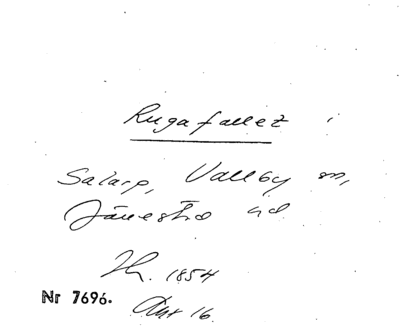 Rugafallet i
Salarp, Vallby sn,
Järrestad hd
Th. 1854
Nr 7696.
Akt 16